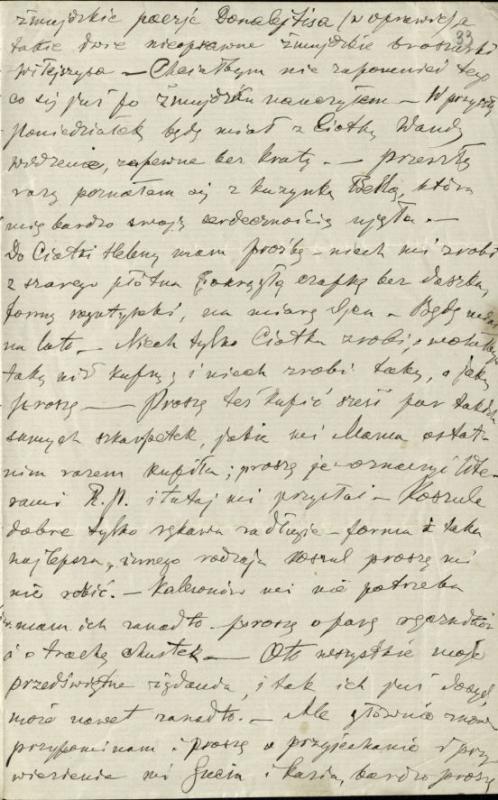 33
żmujdzkie poezje Donalejtisa (w oprawie) a
takie dwie nieoprawne żmujdzkie broszurki
Wilejszysa — Chciałbym nie zapomnieć tego
co się już po żmujdzku nauczyłem — W przyszły
poniedziałek będę miał z Ciotką Wandą
widzenie, zapewne bez kraty. — Przeszłą
razą poznałem się z kuzynką, która
mię bardzo swoją serdecznością ujęła. —
Do Cioci Heleny mam prośbę — niech mi zrobi
z szarego płótna okrągłą czapkę bez daszka,
formy, na miarę Ojca — Będę
na lato — Niech tylko Ciotka zrobi, a
taką nie kupną; i niech zrobi taką, o jaką
proszę — Proszę też kupić sześć par takich
samych szkarpetek, jakie mi Mama ostat-
nim razem kupiła; proszę je oznaczyć lite-
rami R. P. i tutaj mi przysłać — Koszule
dobre tylko rękawa za długie — forma taka
najlepsza, innego rodzaju koszul proszę mi
nie robić. — Kalesonów mi nie potrzeba
mam ich zanadto. proszę o parę ręczników
i o trochę chustek — Oto wszystkie moje
przedświętne żądania, i tak ich już dosyć,
może nawet zanadto. — Ale głównie znowu
przypominam i proszę o przyjechanie i przy
wiezienie mi Gucia i Kazia, bardzo proszę